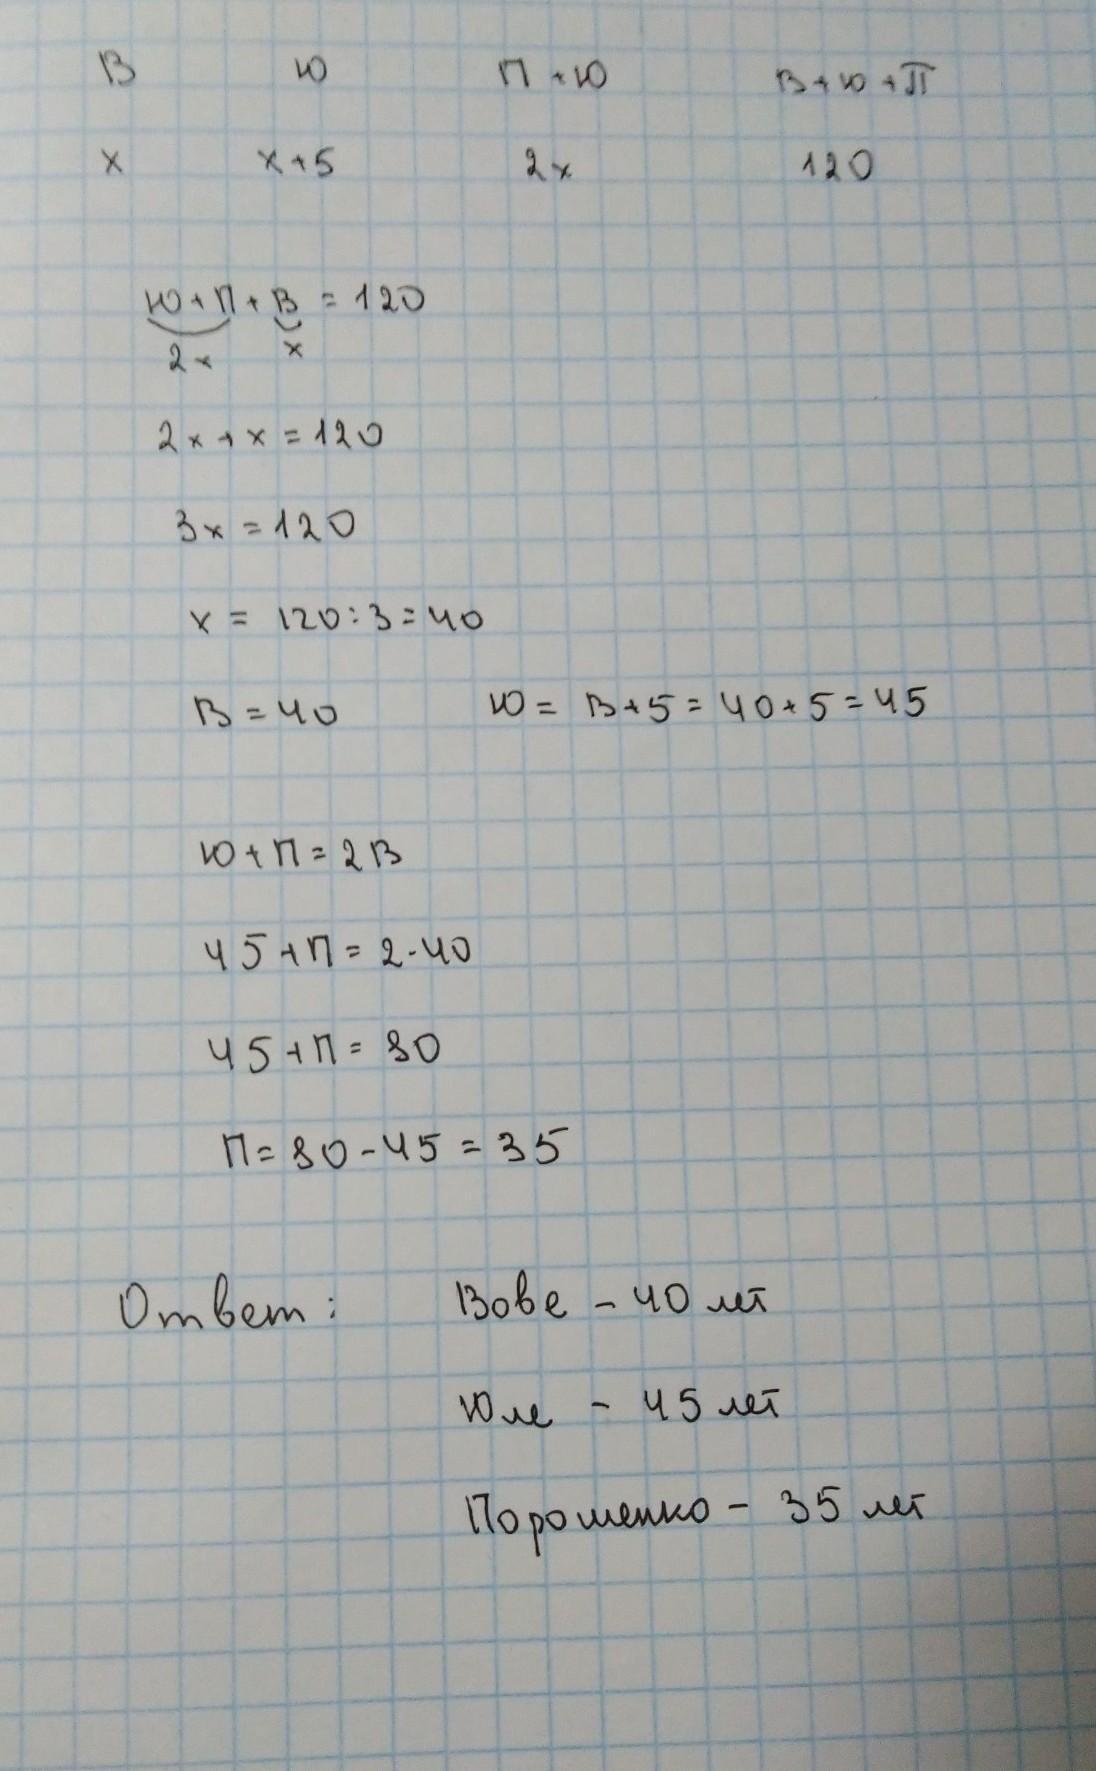 В Ю П + Ю В + Ю + П
x x + 5 2x 120
Ю + П + В = 120
2x x
2x + x = 120
3x = 120
x = 120 : 3 = 40
В = 40 Ю = В + 5 = 40 + 5 = 45
Ю + П = 2В
45 + П = 2 · 40
45 + П = 80
П = 80 - 45 = 35
Ответ: Вове - 40 лет
Юле - 45 лет
Порошенко - 35 лет